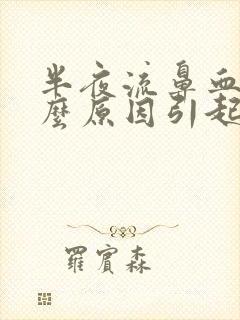 半夜流鼻血
麼原因引起
羅賓森